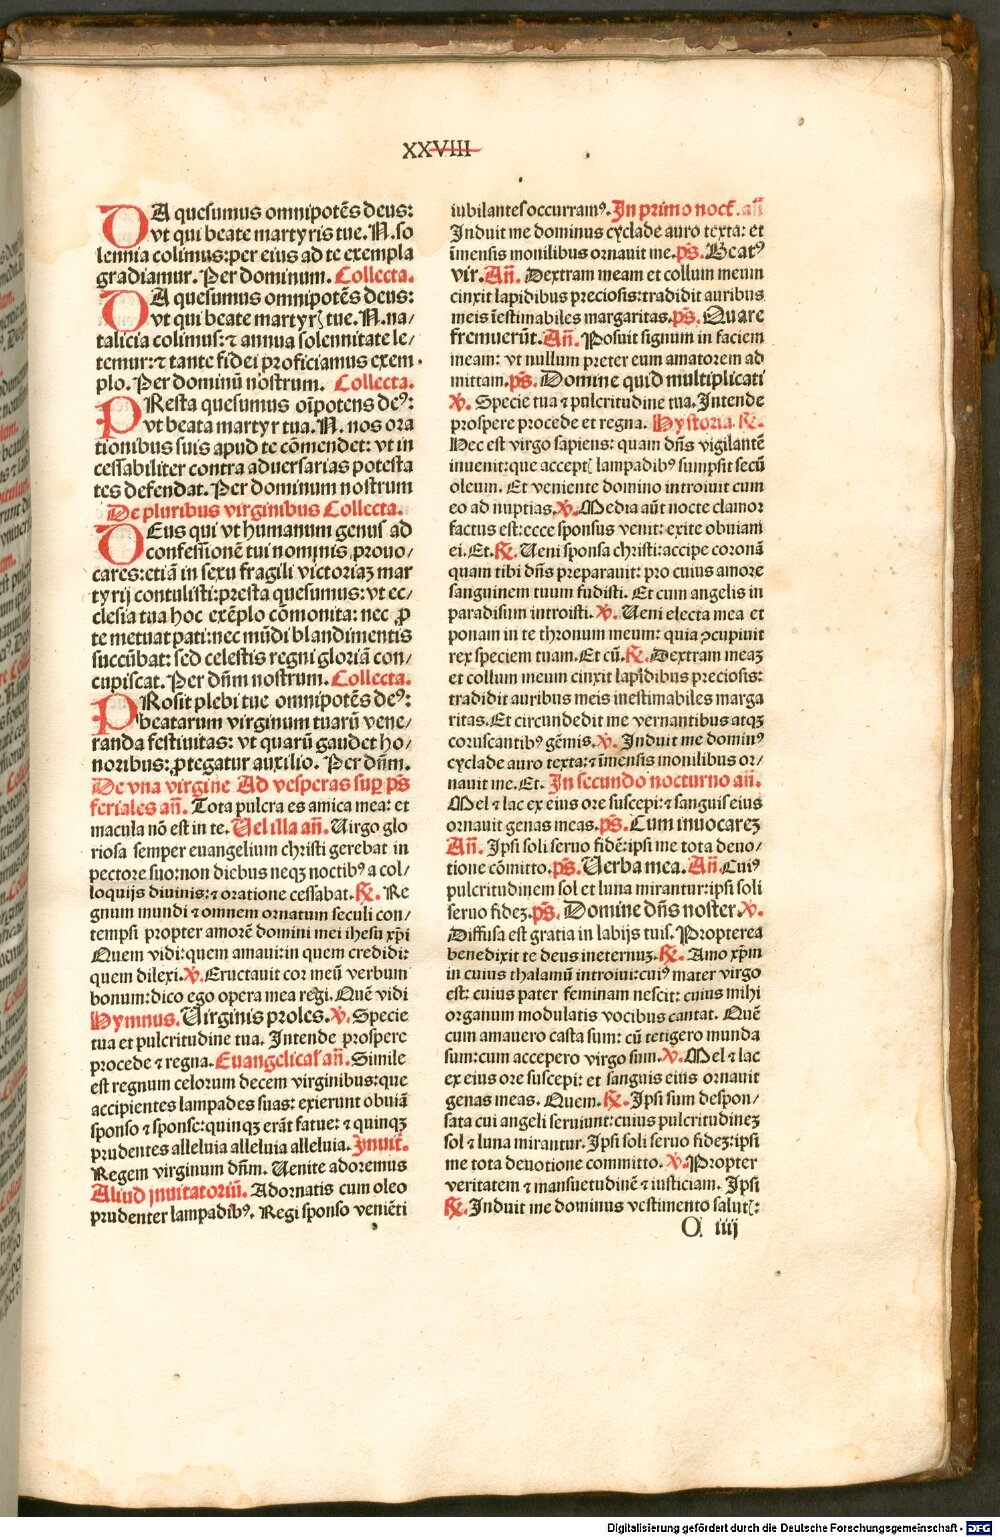 XXVIII
DA quesumus omnipotēs deus:
vt qui beate martyris tue. N. so
lennia colimus: per eius ad te exempla
gradiamur. Per dominum. Collecta.
DA quesumus omnipotēs deus:
vt qui beate martyrꝭ tue. N. na/
talicia colimus: ⁊ annua solennitate le/
temur: ⁊ tante fidei proficiamus exem
plo. Per dominū nostrum. Collecta.
PResta quesumus oīpotens deꝰ:
vt beata martyr tua. N. nos ora
tionibus suis apud te cōmendet: vt in
cessabiliter contra aduersarias potesta
tes defendat. Per dominum nostrum
De pluribus virginibus Collecta.
DEus qui vt humanum genus ad
confessionē tui nominis prouo/
cares: etiā in sexu fragili victoriaꝫ mar
tyrij contulisti: presta quesumus: vt ec/
clesia tua hoc exēplo cōmonita: nec ꝓ
te metuat pati: nec mūdi blandimentis
succūbat: sed celestis regni gloriā con/
cupiscat. Per dn̄m nostrum. Collecta.
PRosit plebi tue omnipotēs deꝰ:
beatarum virginum tuarū vene/
randa festiuitas: vt quarū gaudet ho/
noribus: ꝓtegatur auxilio. Per dn̄m.
De vna virgine Ad vesperas sup̄ ps̄
feriales an̄. Tota pulcra es amica mea: et
macula nō est in te. Uel illa an̄. Uirgo glo
riosa semper euangelium christi gerebat in
pectore suo: non diebus neqꝫ noctibꝰ a col/
loquijs diuinis: ⁊ oratione cessabat. ℟. Re
gnum mundi ⁊ omnem ornatum seculi con/
tempsi propter amorē domini mei ihesu xp̄i
Quem vidi: quem amaui: in quem credidi:
quem dilexi. ℣. Eructauit cor meū verbum
bonum: dico ego opera mea regi. Quē vidi
Hymnus. Uirginis proles. ℣. Specie
tua et pulcritudine tua. Intende prospere
procede ⁊ regna. Euangelical' an̄. Simile
est regnum celorum decem virginibus: que
accipientes lampades suas: exierunt obuiā
sponso ⁊ sponse: quinqꝫ erāt fatue: ⁊ quinqꝫ
prudentes alleluia alleluia alleluia. Inuit̄.
Regem virginum dn̄m. Uenite adoremus
Aliud inuitatoriū. Adornatis cum oleo
prudenter lampadibꝰ. Regi sponso veniēti
iubilantes occurramꝰ. In primo noct̄. an̄
Induit me dominus cyclade auro texta: et
īmensis monilibus ornauit me. ps̄. Beatꝰ
vir. An̄. Dextram meam et collum meum
cinxit lapidibus preciosis: tradidit auribus
meis īestimabiles margaritas. ps̄. Quare
fremuerūt. An̄. Posuit signum in faciem
meam: vt nullum preter eum amatorem ad
mittam. ps̄. Domine quid multiplicati
℣. Specie tua ⁊ pulcritudine tua. Intende
prospere procede et regna. Hystoria. ℟.
Hec est virgo sapiens: quam dn̄s vigilantē
inuenit: que acceptꝭ lampadibꝰ sumpsit secū
oleum. Et veniente domino introiuit cum
eo ad nuptias. ℣. Media aūt nocte clamor
factus est: ecce sponsus venit: exite obuiam
ei. Et. ℟. Ueni sponsa christi: accipe coronā
quam tibi dn̄s preparauit: pro cuius amore
sanguinem tuum fudisti. Et cum angelis in
paradisum introisti. ℣. Ueni electa mea et
ponam in te thronum meum: quia ꝯcupiuit
rex speciem tuam. Et cū. ℟. Dextram meaꝫ
et collum meum cinxit lapidibus preciosis:
tradidit auribus meis inestimabiles marga
ritas. Et circundedit me vernantibus atqꝫ
coruscantibꝰ gēmis. ℣. Induit me dominꝰ
cyclade auro texta: ⁊ īmensis monilibus or/
nauit me. Et. In secundo nocturno an̄.
Mel ⁊ lac ex eius ore suscepi: ⁊ sanguis eius
ornauit genas meas. ps̄. Cum inuocareꝫ
An̄. Ipsi soli seruo fidē: ipsi me tota deuo/
tione cōmitto. ps̄. Uerba mea. An̄. Cuiꝰ
pulcritudinem sol et luna mirantur: ipsi soli
seruo fideꝫ. ps̄. Domine dn̄s noster. ℣.
Diffusa est gratia in labijs tuis. Propterea
benedixit te deus ineternuꝫ. ℟. Amo xp̄m
in cuius thalamū introiui: cuiꝰ mater virgo
est: cuius pater feminam nescit: cuius mihi
organum modulatis vocibus cantat. Quē
cum amauero casta sum: cū tetigero munda
sum: cum accepero virgo sum. ℣. Mel ⁊ lac
ex eius ore suscepi: et sanguis eius ornauit
genas meas. Quem. ℟. Ipsi sum despon/
sata cui angeli seruiunt: cuius pulcritudineꝫ
sol ⁊ luna mirantur. Ipsi soli seruo fideꝫ: ipsi
me tota deuotione committo. ℣. Propter
veritatem ⁊ mansuetudinē ⁊ iusticiam. Ipsi
℟. Induit me dominus vestimento salutꝭ:
O iiij
Digitalisierung gefördert durch die Deutsche Forschungsgemeinschaft - DFG